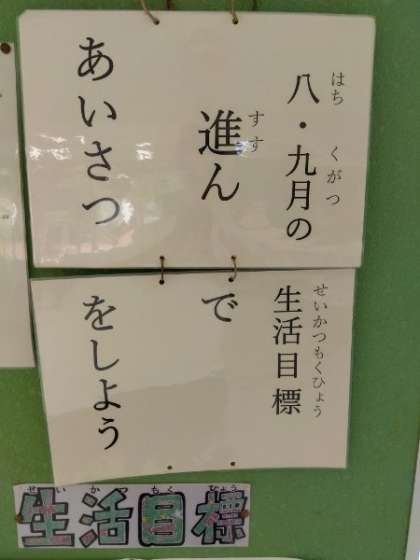 八・九月の生活目標
はち くがつ せいかつもくひょう
進んで
すす
あいさつをしよう
生活目標
せいかつもくひょう